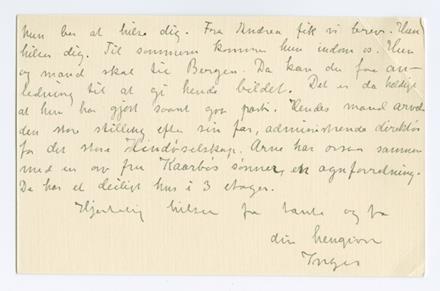 hun bar at hilse dig. Fra Andrea fik vi brev. Hun
hilser dig. Til sommeren kommer hun indom os. Hun
og mand skal til Bergen. Da kan du faa an-
ledning til at gi hende bildet. Det er da heldigt
at hun har gjort saant godt parti. Hendes mand arvede
den store stilling efter sin far, administrerende direktør
for det store selskap. Arne har ossaa sammen
med en av fru Kaarbøs sønner, en agnforretning.
De har et deiligt hus i 3 etager.
Hjertelig hilsen fra tante og fra
din hengivne
Inger